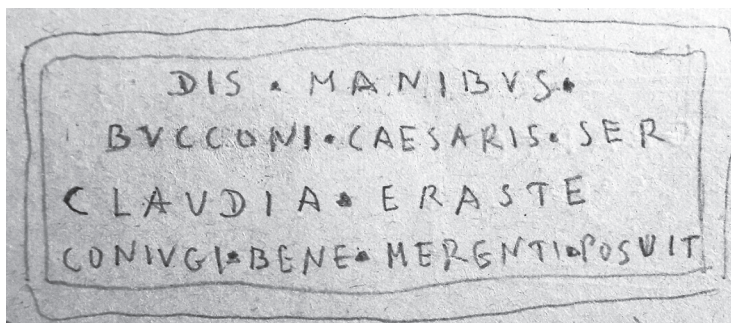 DIS · MANIBVS ·
BVCCONI · CAESARIS · SER
CLAVDIA · ERASTE
CONIVGI · BENE · MERENTI · POSVIT